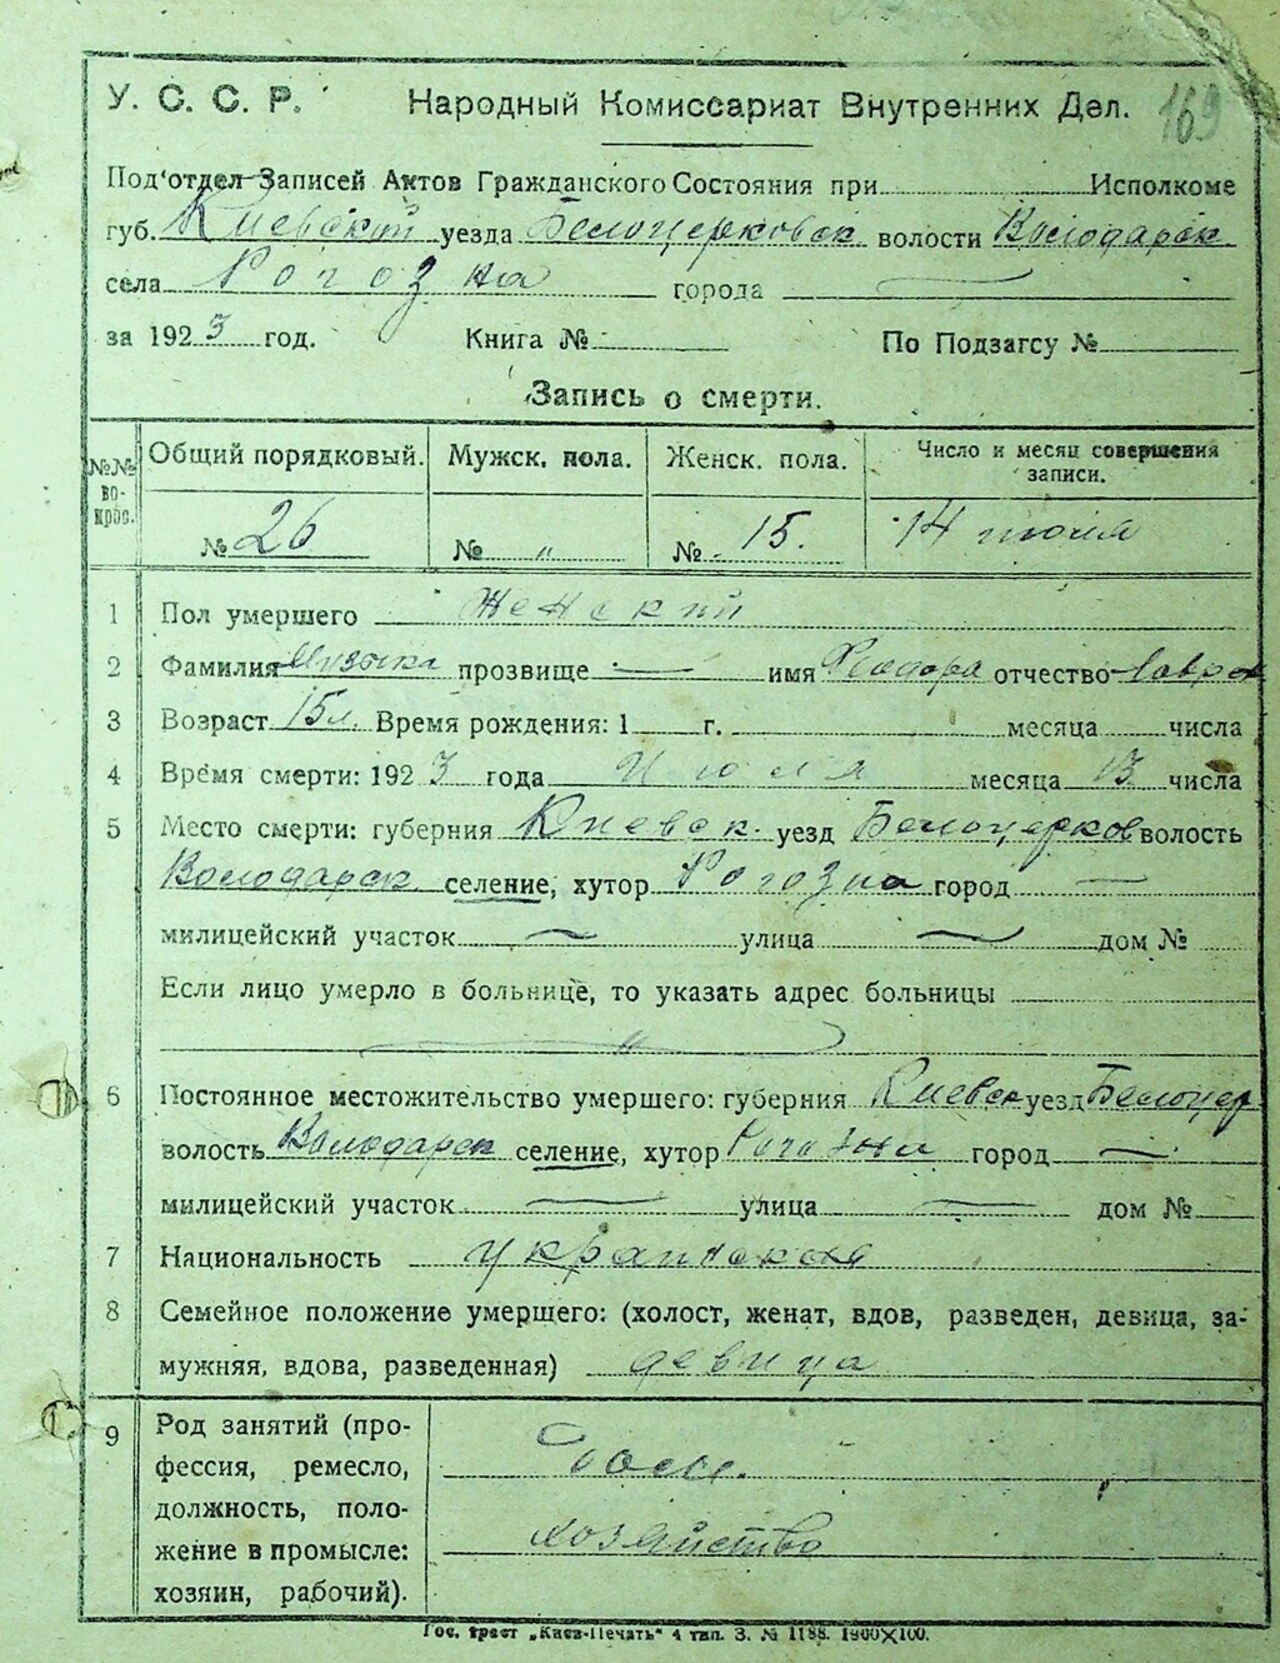 169
У. С. С. Р. Народный Комиссариат Внутренних Дел.
Под'отдел Записей Актов Гражданского Состояния при Исполкоме
губ. Киевский уезда Белоцерковск. волости Володарск.
села Рогозна города —
за 1923 год. Книга № По Подзагсу №
Запись о смерти.
№№ во-прос. Общий порядковый. Мужск. пола. Женск. пола. Число и месяц совершения записи.
№ 26 № „ № 15. 14 июля
1 Пол умершего Женский
2 Фамилия Музыка прозвище — имя Феодора отчество Лавр
3 Возраст 15 л. Время рождения: 1 г. месяца числа
4 Время смерти: 1923 года Июля месяца 13 числа
5 Место смерти: губерния Киевск. уезд Белоцерков волость
Володарск. селение, хутор Рогозна город —
милицейский участок — улица — дом №
Если лицо умерло в больнице, то указать адрес больницы
„
6 Постоянное местожительство умершего: губерния Киевск уезд Белоцер
волость Володарск селение, хутор Рогозна город —
милицейский участок — улица — дом №
7 Национальность украинская
8 Семейное положение умершего: (холост, женат, вдов, разведен, девица, за-
мужняя, вдова, разведенная) девица
9 Род занятий (про-
фессия, ремесло,
должность, поло-
жение в промысле:
хозяин, рабочий).
хозяйство
Гос. трест „Киев-Печать“ 4 тип. З. № 1188. 1900Х100.